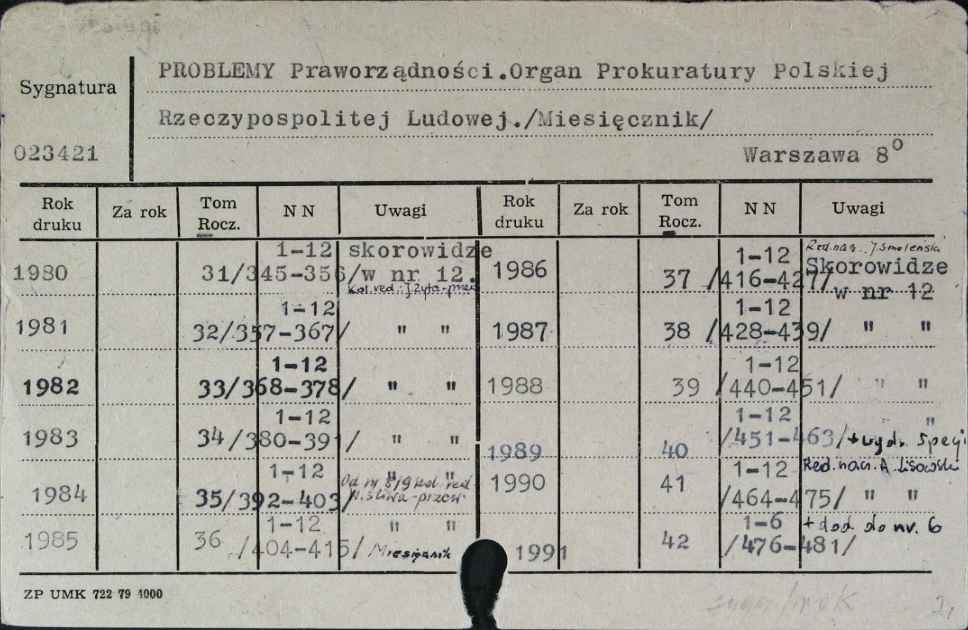 PROBLEMY Praworządności.Organ Prokuratury Polskiej
Sygnatura
Rzeczypospolitej Ludowej./Miesięcznik/
023421
Warszawa 8⁰
Rok druku Za rok Tom Rocz. N N Uwagi Rok druku Za rok Tom Rocz. N N Uwagi
1980 31/345-356/ 1-12 skorowidze
w nr 12.
1981 32/357-367/ 1-12 " "
1982 33/368-378/ 1-12 " "
1983 34/380-391/ 1-12 " "
1984 35/392-403/ 1-12 " "
Od nr 8/9 kol. red.
1985 36 /404-415/ 1-12 " "
Miesięcznik
1986 37 /416-427/ 1-12 Red. nacz. J. Smoleński
Skorowidze
w nr 12
1987 38 /428-439/ 1-12 " "
1988 39 /440-451/ 1-12 " "
1989 40 /451-463/ 1-12 "
+ wyd.
1990 41 /464-475/ 1-12 Red. nacz. A. Lisowski
" "
1991 42 /476-481/ 1-6 + dod do nr. 6
ZP UMK 722 79 4000